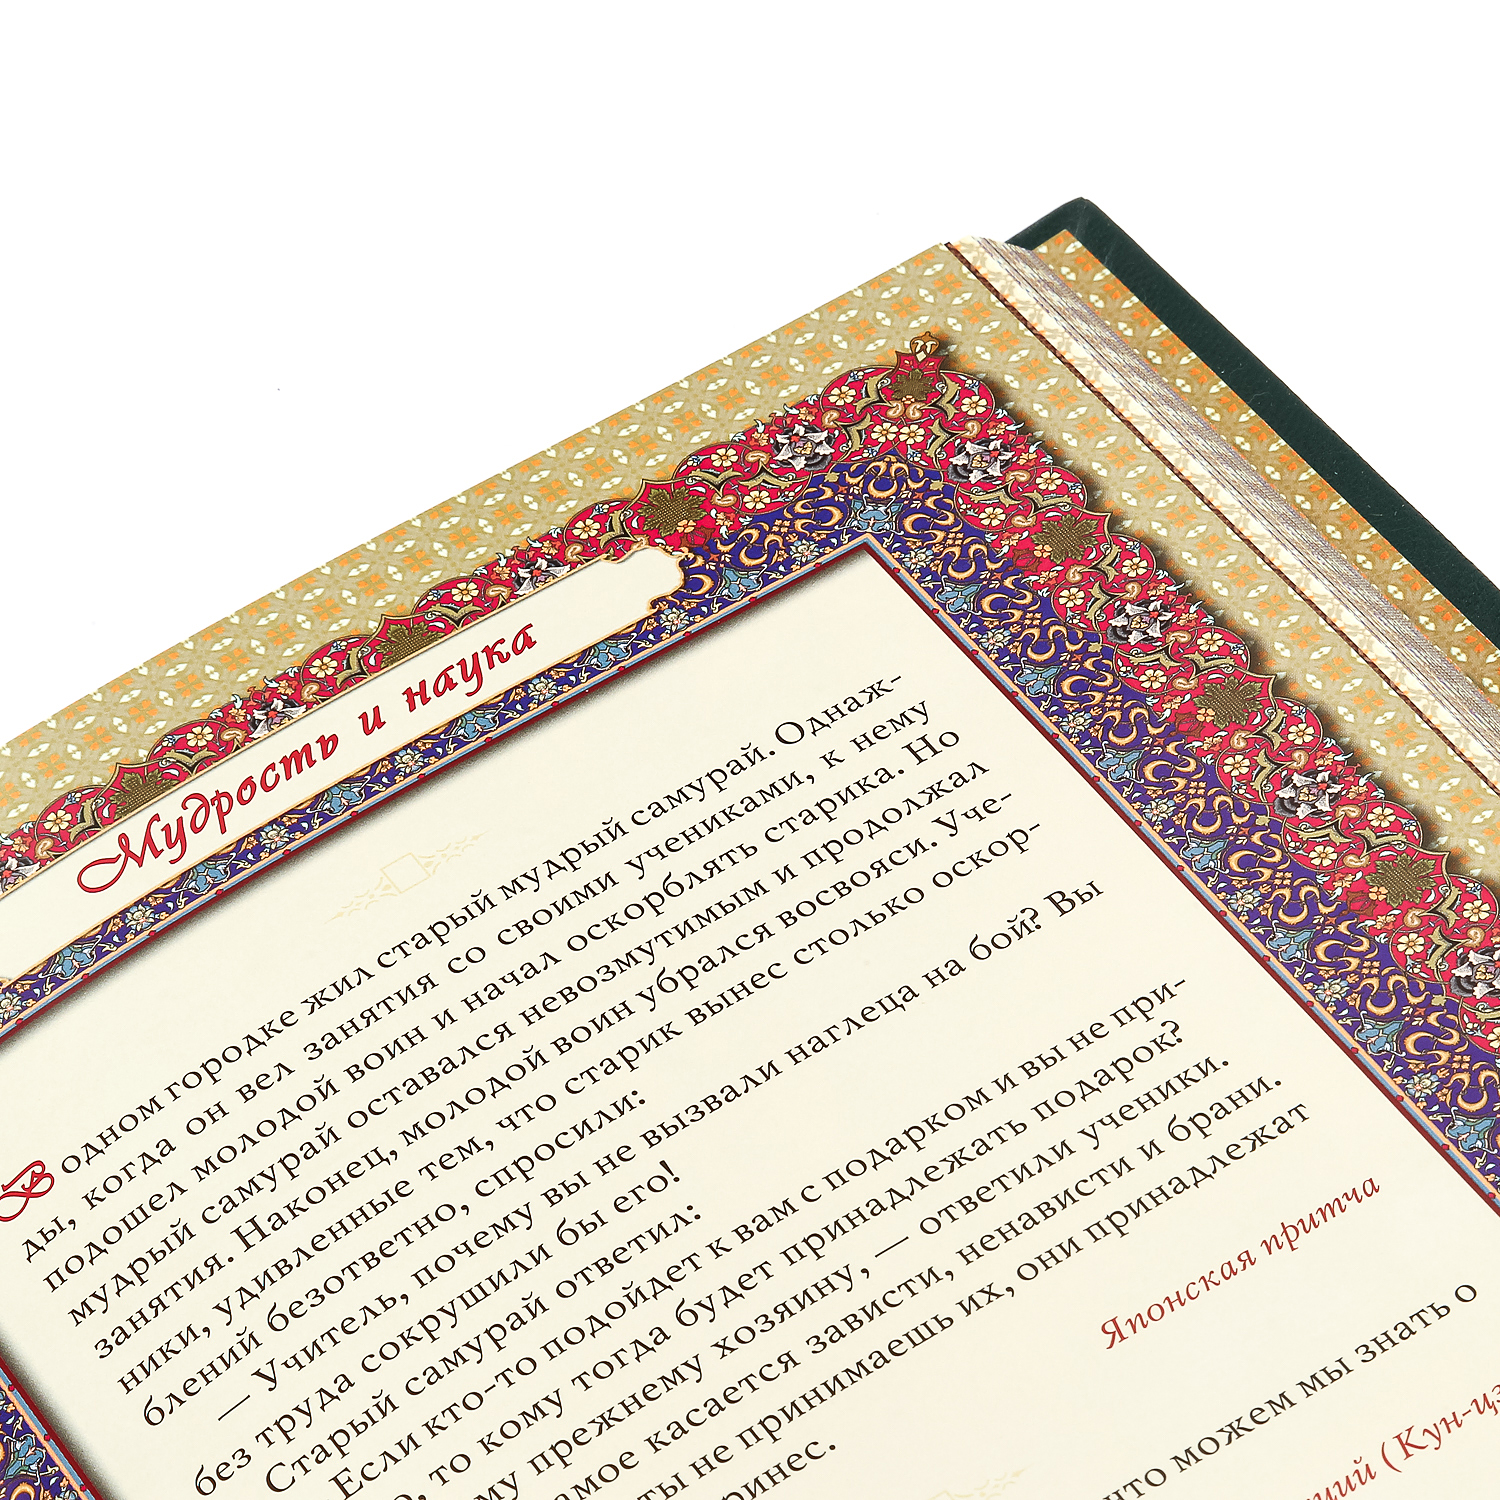 Мудрость и наука
В одном городке жил старый мудрый самурай. Однаж-
ды, когда он вел занятия со своими учениками, к нему
подошел молодой воин и начал оскорблять старика. Но
мудрый самурай оставался невозмутимым и продолжал
занятия. Наконец, молодой воин убрался восвояси. Уче-
ники, удивленные тем, что старик вынес столько оскор-
блений безответно, спросили:
— Учитель, почему вы не вызвали наглеца на бой? Вы
без труда сокрушили бы его!
Старый самурай ответил:
Если кто-то подойдет к вам с подарком и вы не при-
то кому тогда будет принадлежать подарок?
прежнему хозяину, — ответили ученики.
касается зависти, ненависти и брани.
ты не принимаешь их, они принадлежат
Японская притча
что можем мы знать о
(Кун-цз